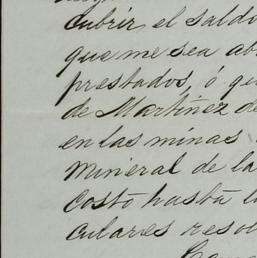 cubrir el saldo
que me sea ab
prestados, ó qu
de Martinez de
en las minas
mineral de la
costó hasta l
culares reso